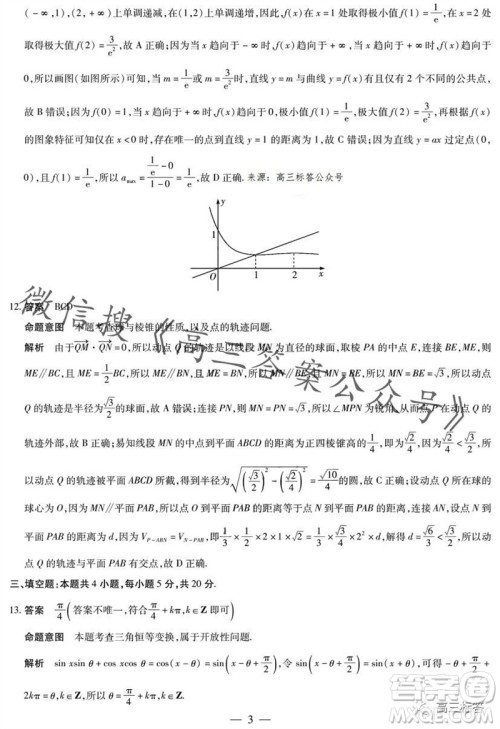 (－∞,1),(2,＋∞)上单调递减,在(1,2)上单调递增,所以 f(x)在 x=1 处取得极小值 f(1)=1/e,在 x=2 处
取得极大值 f(2)=3/e²,故 A 正确;因为当 x 趋向于－∞时,f(x)趋向于＋∞,当 x 趋向于＋∞时,f(x)趋向于
0,所以画图(如图所示)可知,当 m=1/e 或 m=3/e² 时,直线 y=m 与曲线 y=f(x)均仅有 2 个不同的公共点,
故 B 错误;因为 f(0)=1,当 x 趋向于＋∞时,f(x)趋向于 0,极小值 f(1)=1/e,极大值 f(2)=3/e²,再根据 f(x)
的图象特征可知仅在 x<0 时,存在唯一的点到直线 y=1 的距离为 1,故 C 错误;因为直线 y=ax 过定点(0,
0),且 f(1)=1/e,所以 a_max=(1/e－0)/(1－0)=1/e,故 D 正确. 来源:高三标答公众号
y
1
O
1
2
x
12. 答案 BCD
命题意图 本题考查球与棱锥的性质,以及点的轨迹问题.
解析 由于QM·QN=0,所以动点 Q 的轨迹是以线段 MN 为直径的球面,取棱 PA 的中点 E,连接 BE,ME,则
ME∥BC,且 ME=1/2 BC,所以 ME∥BN,且 ME=BN,所以四边形 MNBE 为平行四边形,所以 MN=BE=√3,所以动点
Q 的轨迹是半径为√3/2的球面,故 A 错误;连接 PN,则 MN=PN=√3,所以∠MPN 为锐角,从而点 P 在动点 Q
的轨迹外部,故 B 正确;易知线段 MN 的中点到平面 ABCD 的距离为正四棱锥高的1/4,即为√2/4,因为√2/4<√3/2,所
以动点 Q 的轨迹被平面 ABCD 所截,得到半径为√((√3/2)²－(√2/4)²)=√10/4的圆,故 C 正确;因为动点 Q 的轨迹在球的
球心为 O,因为 MN∥平面 PAB,所以点 O 到平面 PAB 的距离与点 N 到平面 PAB 的距离相等,连接 AN,设点 N 到
平面 PAB 的距离为 d,因为 V_P－ABN=V_N－PAB,即1/3×1/2×2×1×√2=1/3×1/2×2×√3×d,所以 d=√6/3<√3/2,所以动
点 Q 的轨迹与平面 PAB 有交点,故 D 正确.
三、填空题:本题共 4 小题,每小题 5 分,共 20 分.
13. 答案 π/4(答案不唯一,符合π/4+kπ,k∈Z 即可)
命题意图 本题考查三角恒等变换,属于开放性问题.
解析 sin xsin θ+cos xcos θ=cos(x－θ)=sin(x－θ+π/2),令 sin(x－θ+π/2)=sin(x+θ),则－θ+π/2+
2kπ=θ,k∈Z,所以 θ=π/4+kπ,k∈Z.
— 3 —
微信搜《高三答案公众号》
高三标答